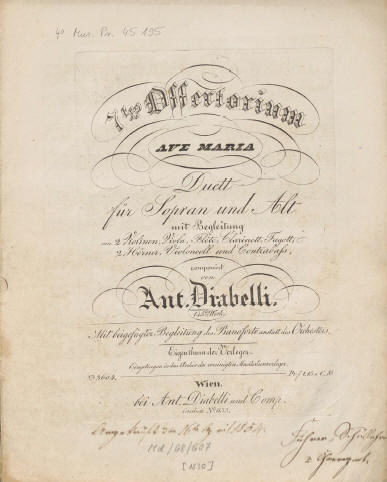 4° Mus. Pr. 45 195
7tes Offertorium
AVE MARIA
Duett
für Sopran und Alt
mit Begleitung
von 2 Violinen, Viola, Flöte, Clarinett, Fagott,
2 Hörner, Violoncell und Contrabass,
componirt
von
Ant. Diabelli.
Werk.
Mit beigefügter Begleitung des Pianoforte anstatt des Orchesters.
Eigenthum der Verleger.
Eingetragen in das Archiv der vereinigten Musikalienverleger.
No 3604.
Wien,
bei Ant. Diabelli und Comp.
Graben No 1133.
1854.
[1830]